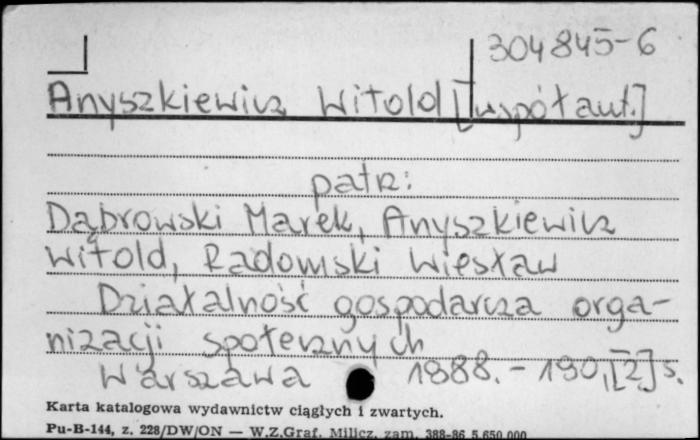 304845-6
Anyszkiewicz Witold [współaut.]
patrz:
Dąbrowski Marek, Anyszkiewicz
Witold, Radomski Wiesław
Działalność gospodarcza orga-
nizacji społecznych
Warszawa 1988. - 190,[2] s.
Karta katalogowa wydawnictw ciągłych i zwartych.
Pu-B-144, z. 228/DW/ON — W.Z.Graf. Milicz, zam. 388-86 5.650.000